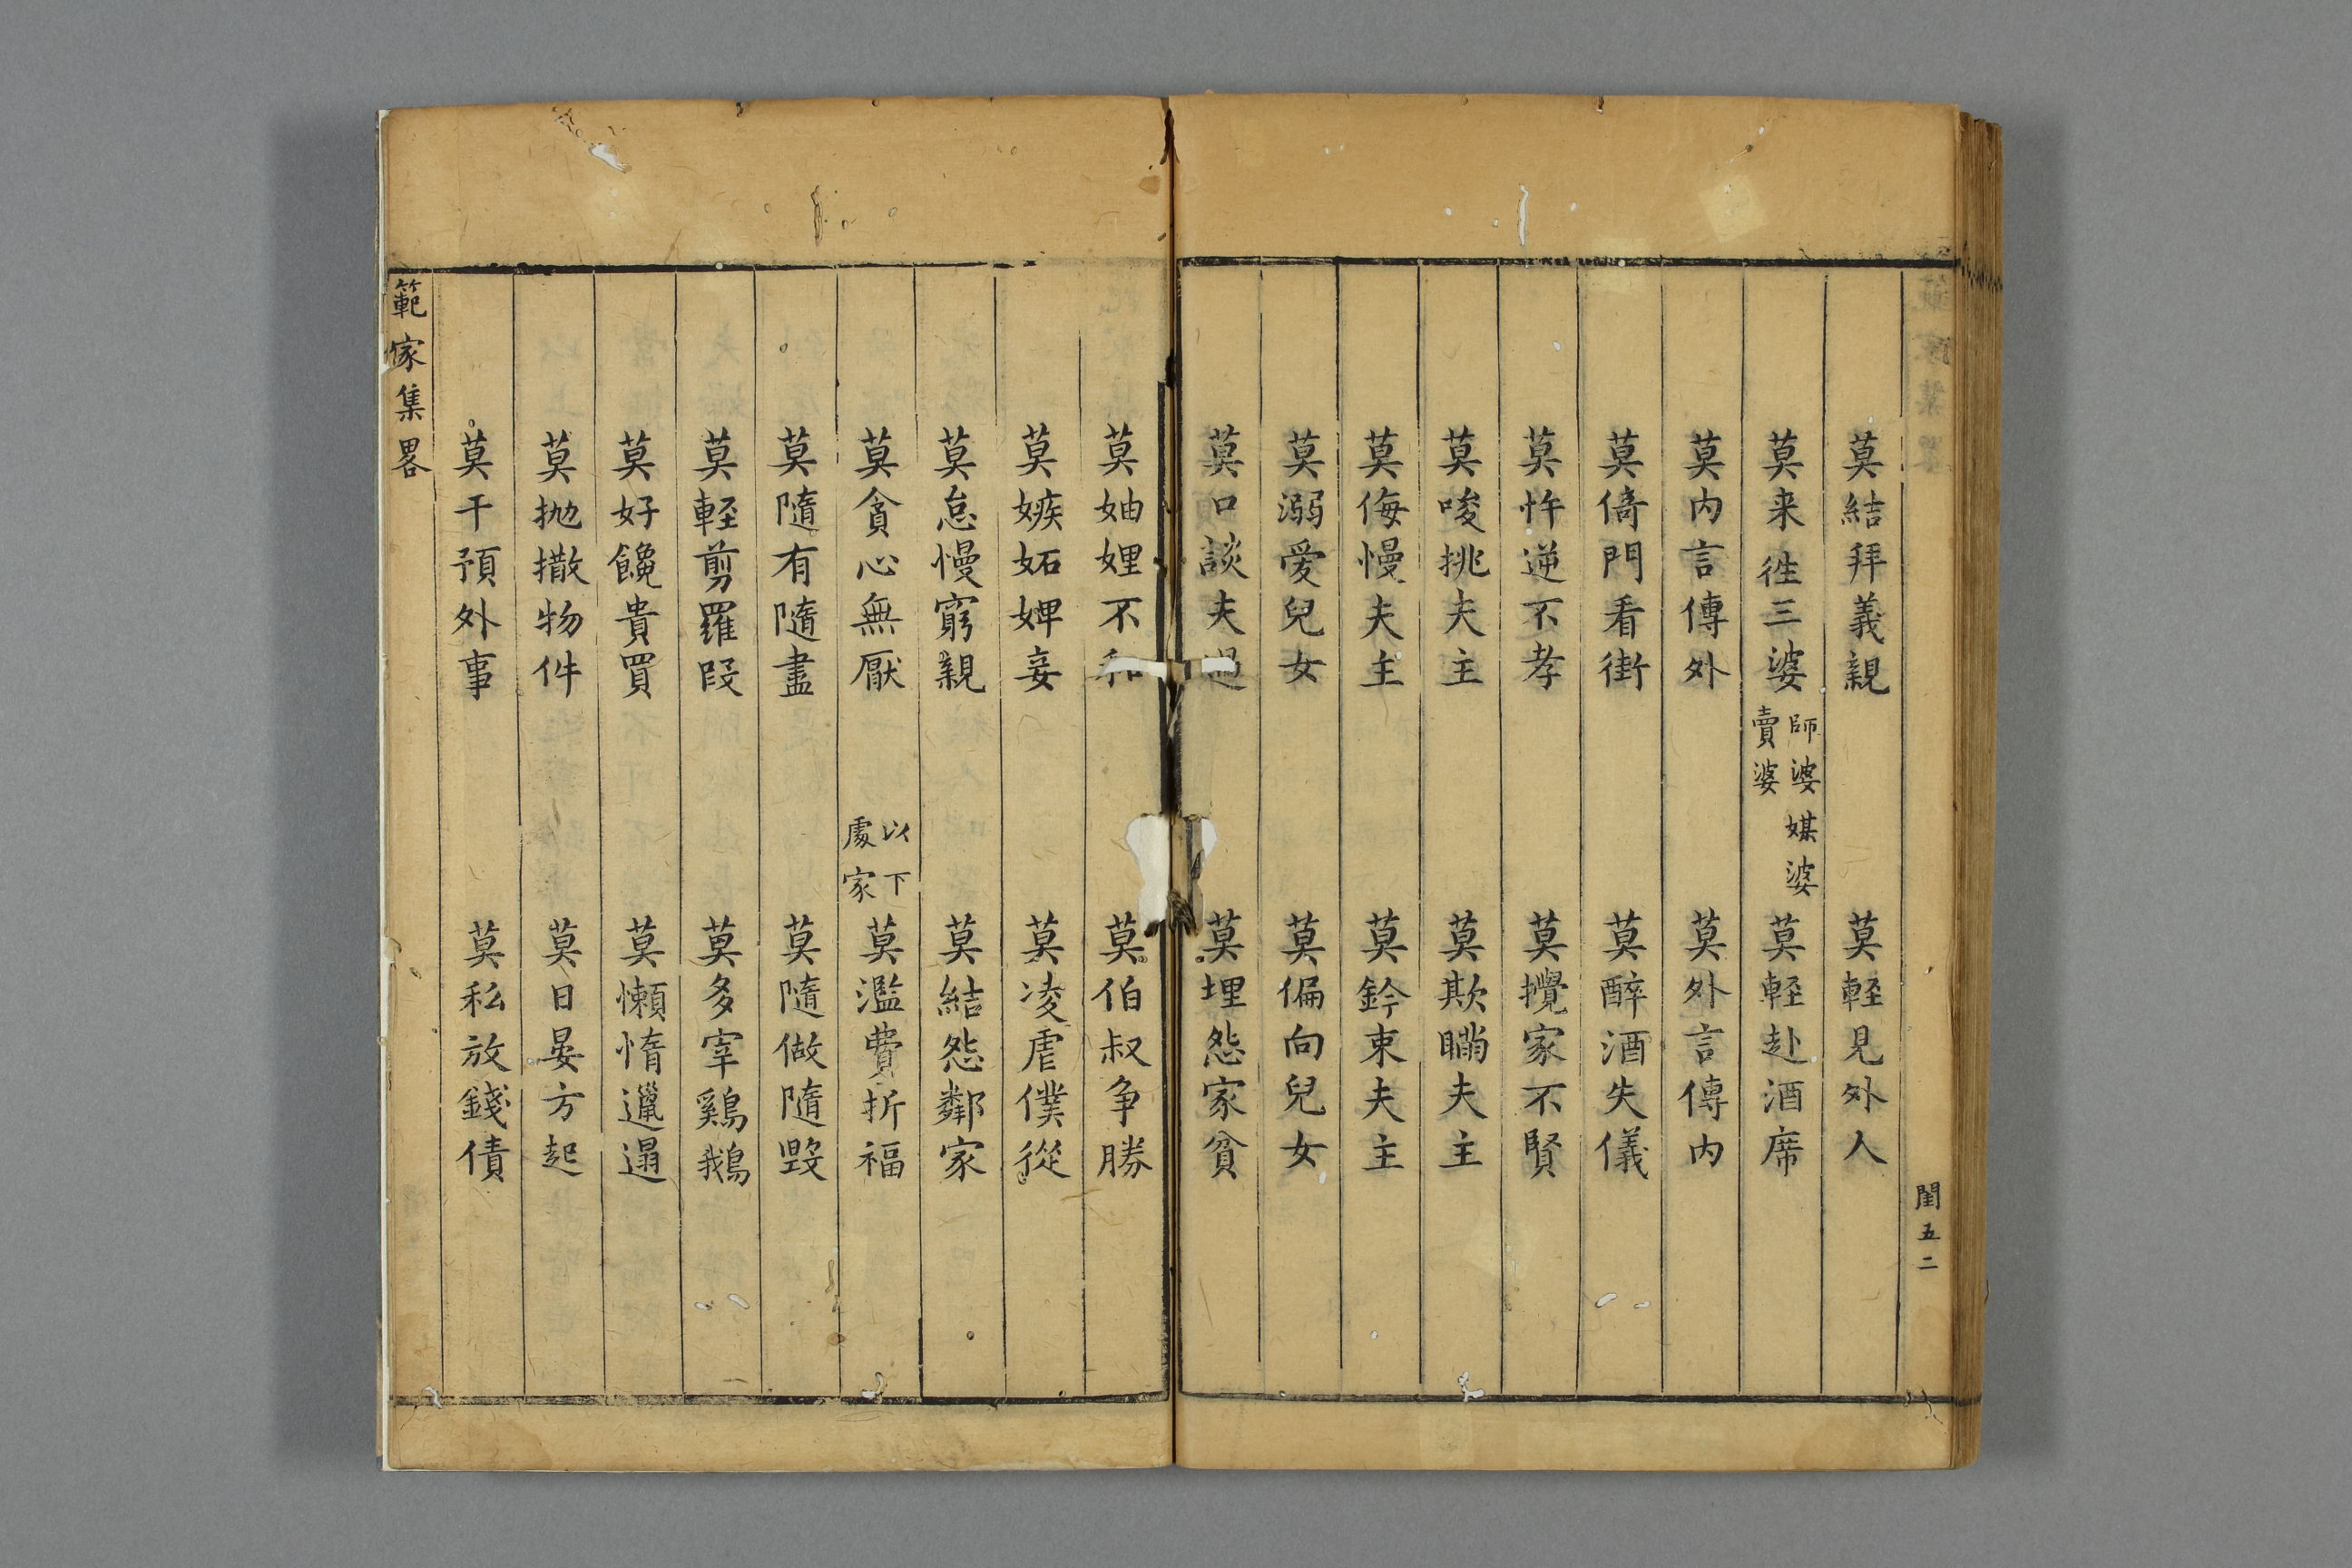 莫結拜義親　莫輕見外人
莫来徃三婆師婆媒婆賣婆　莫輕赴酒席
莫内言傳外　莫外言傳内
莫倚門看街　莫醉酒失儀
莫忤逆不孝　莫攪家不賢
莫唆挑夫主　莫欺瞞夫主
莫侮慢夫主　莫鈐束夫主
莫溺愛兒女　莫偏向兒女
莫口談夫過　莫埋怨家貧
閨五二
莫妯娌不和　莫伯叔争勝
莫嫉妬婢妾　莫凌虐僕從
莫怠慢窮親　莫結怨鄰家
莫貪心無厭以下處家　莫濫費折福
莫隨有隨盡　莫隨做隨毀
莫輕剪羅段　莫多宰鷄鵝
莫好饞貴買　莫懶惰邋遢
莫抛撒物件　莫日晏方起
莫干預外事　莫私放錢債
範家集畧